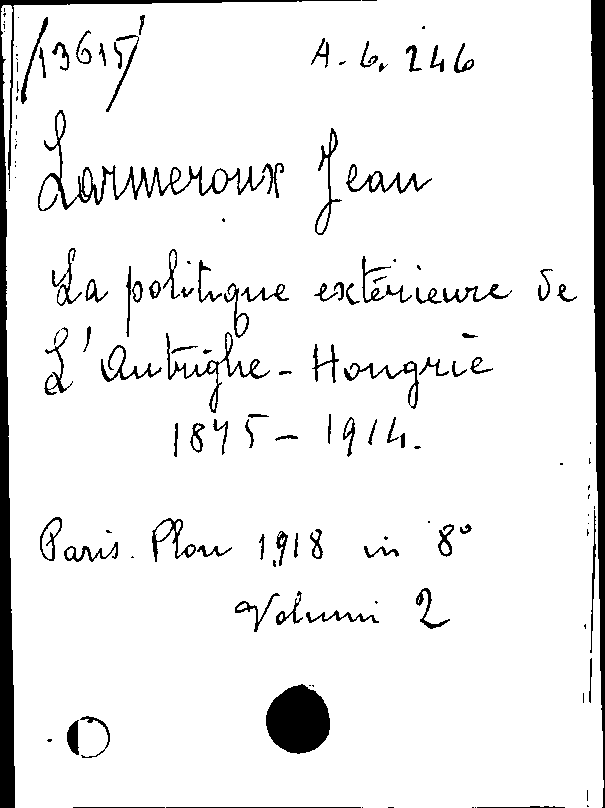 /13615/ A. 6. 246
Larmeroux Jean
La politique extérieure de
L'Autrighe-Hongrie
1875-1914.
Paris. Plon 1918 in 8°
Volumi 2